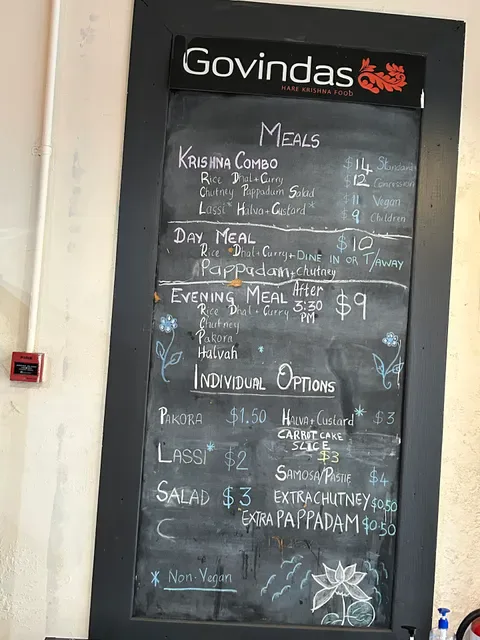 Govindas
HARE KRISHNA FOOD
MEALS
KRISHNA COMBO $14 Standard
Rice Dhal+Curry $12 Concession
Chutney Pappadum Salad $11 Vegan
Lassi* Halva+Custard* $9 Children
DAY MEAL $10
Rice Dhal+Curry+DINE IN OR T/AWAY
Pappadam+chutney
EVENING MEAL After 3:30 PM $9
Rice Dhal+Curry
Chutney
Pakora
Halvah *
INDIVIDUAL OPTIONS
PAKORA $1.50
LASSI* $2
SALAD $3
HALVA+CUSTARD* $3
CARROT CAKE
SLICE
$3
SAMOSA/PASTIE $4
EXTRA CHUTNEY $0.50
EXTRA PAPPADAM $0.50
* Non-Vegan